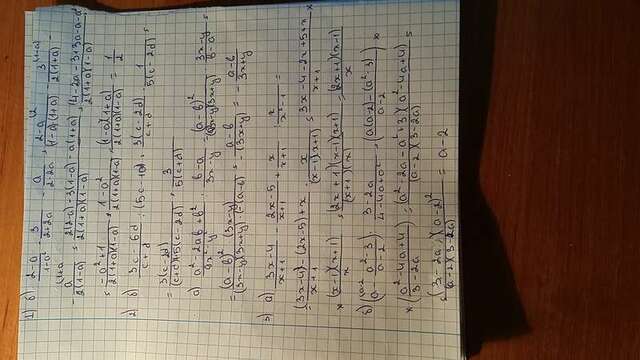 1) б) (2-a)/(1-a²) - 3/(2+2a) - a/(2-2a) = (2-a)/((1-a)(1+a)) - 3/(2(1+a)) -
a/(2(1-a)) = (2(2-a)-3(1-a)-a(1+a))/(2(1+a)(1-a)) = (4-2a-3+3a-a-a²)/(2(1+a)(1-a)) =
= (-a²+1)/(2(1+a)(1-a)) = (1-a²)/(2(1+a)(1-a)) = ((1-a)(1+a))/(2(1+a)(1-a)) = 1/2
2) б) (3c-6d)/(c+d) : (5c-10d) = 3(c-2d)/(c+d) · 1/(5(c-2d)) =
= 3(c-2d)/((c+d)·5(c-2d)) = 3/(5(c+d))
a) (a²-2ab+b²)/(9x²-y²) : (b-a)/(3x-y) = (a-b)²/((3x-y)(3x+y)) · (3x-y)/(b-a) =
= ((a-b)²·(3x-y))/((3x-y)(3x+y)·(-(a-b))) = (a-b)/(-(3x+y)) = -(a-b)/(3x+y)
3) a) (3x-4)/(x+1) - (2x-5)/(x+1) + x/(x+1) : x/(x²-1) =
= ((3x-4)-(2x-5)+x)/(x+1) : x/((x-1)(x+1)) = (3x-4-2x+5+x)/(x+1) ×
× ((x-1)(x+1))/x = ((2x+1)(x-1)(x+1))/((x+1)(x)) = ((2x+1)(x-1))/x
б) (a - (a²-3)/(a-2)) : (3-2a)/(4-4a+a²) = ((a(a-2)-(a²-3))/(a-2)) ×
× ((a²-4a+4)/(3-2a)) = ((a²-2a-a²+3)(a²-4a+4))/((a-2)(3-2a)) =
= ((3-2a)(a-2)²)/((a-2)(3-2a)) = a-2